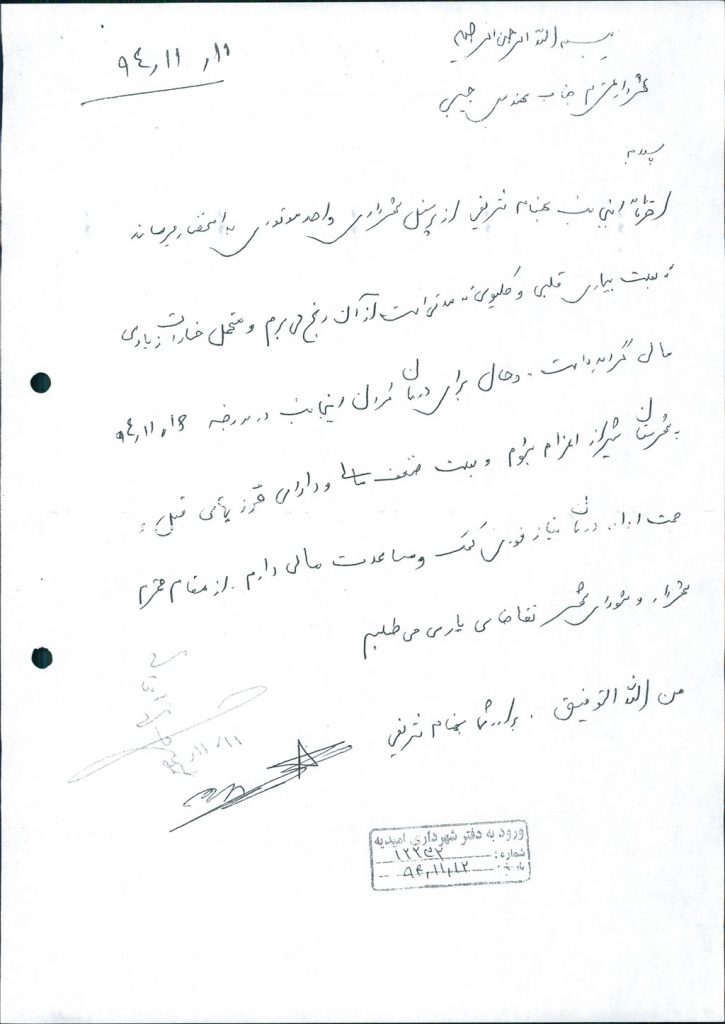 بسم الله الرحمن الرحیم
۹۴٫۱۱٫۱۱
شهردار محترم جناب مهندس حبیبی
سلام
احتراماً اینجانب بهنام شریفی از پرسنل شهرداری واحد موتوری به استحضار میرساند
به علت بیماری قلبی و کلیوی که مدتی است از آن رنج می برم و متحمل خسارات زیادی
مالی گردیده است. و حال برای درمان کردن اینجانب در مورخه ۹۴٫۱۱٫۱۳
به شهرستان شیراز اعزام شوم و بعلت ضعف مالی و دارای قرض های قبلی
جهت ادامه درمان نیاز فوری کمک و مساعدت مالی دارم. از مقام محترم
شهردار و شورای شهر تقاضای یاری می طلبم
من الله التوفیق. برادر شما بهنام شریفی
۱۱/۱۱
ورود به دفتر شهرداری امیدیه
شماره: ۱۲۲۳۲
تاریخ: ۹۴٫۱۱٫۱۲